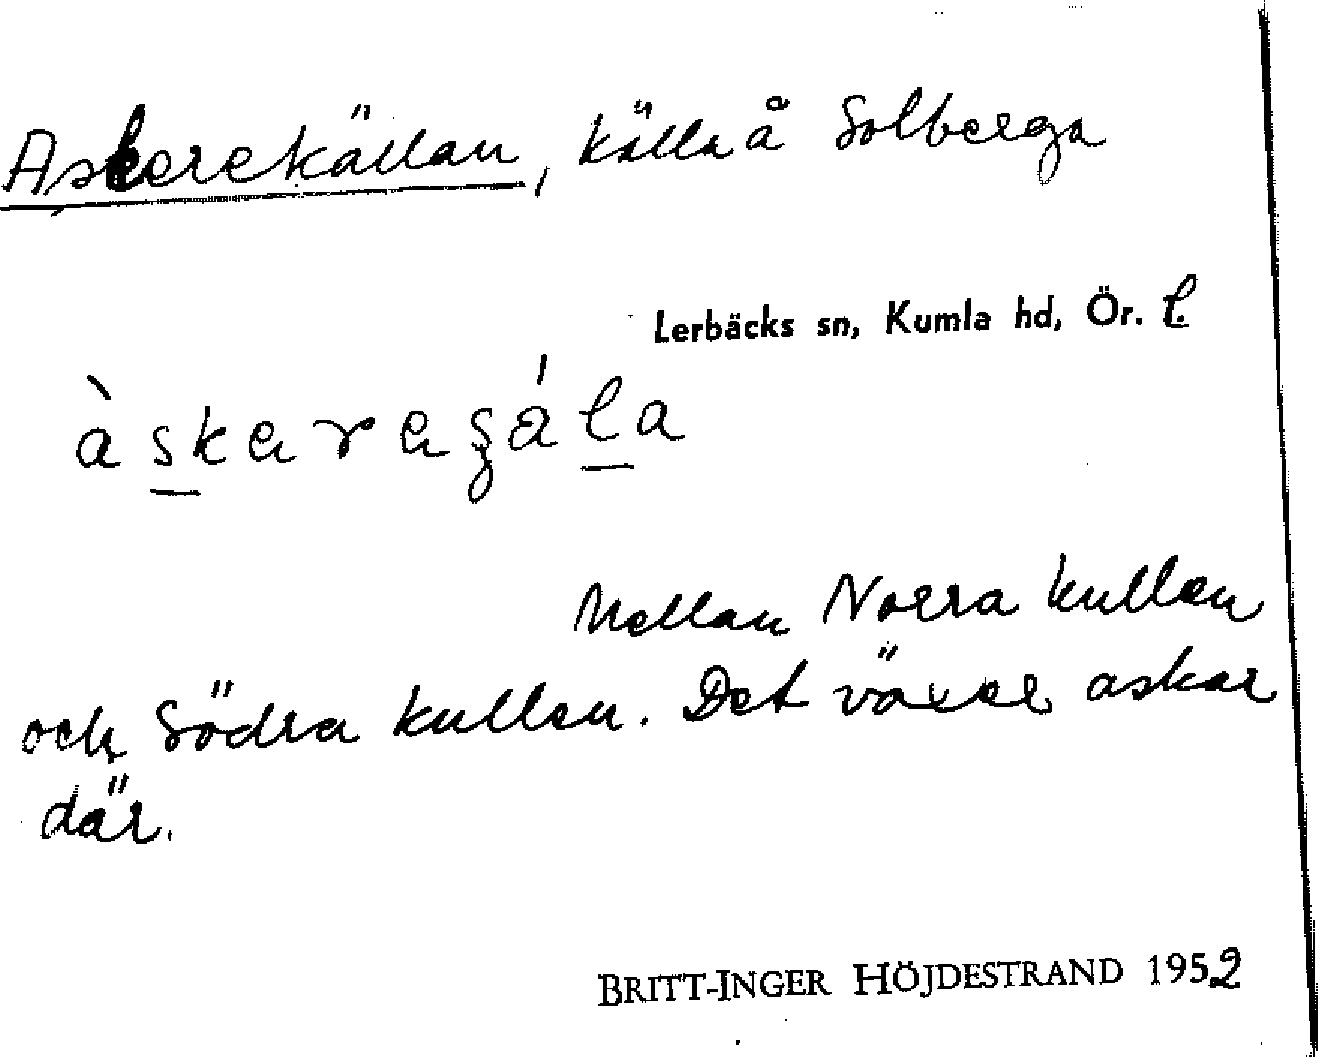 Askerekällan, källa å Solberga
Lerbäcks sn, Kumla hd, Ör. l.
àskaraʂála
Mellan Norra kullen
och Södra kullen. Det växer askar
där.
BRITT-INGER HÖJDESTRAND 1952